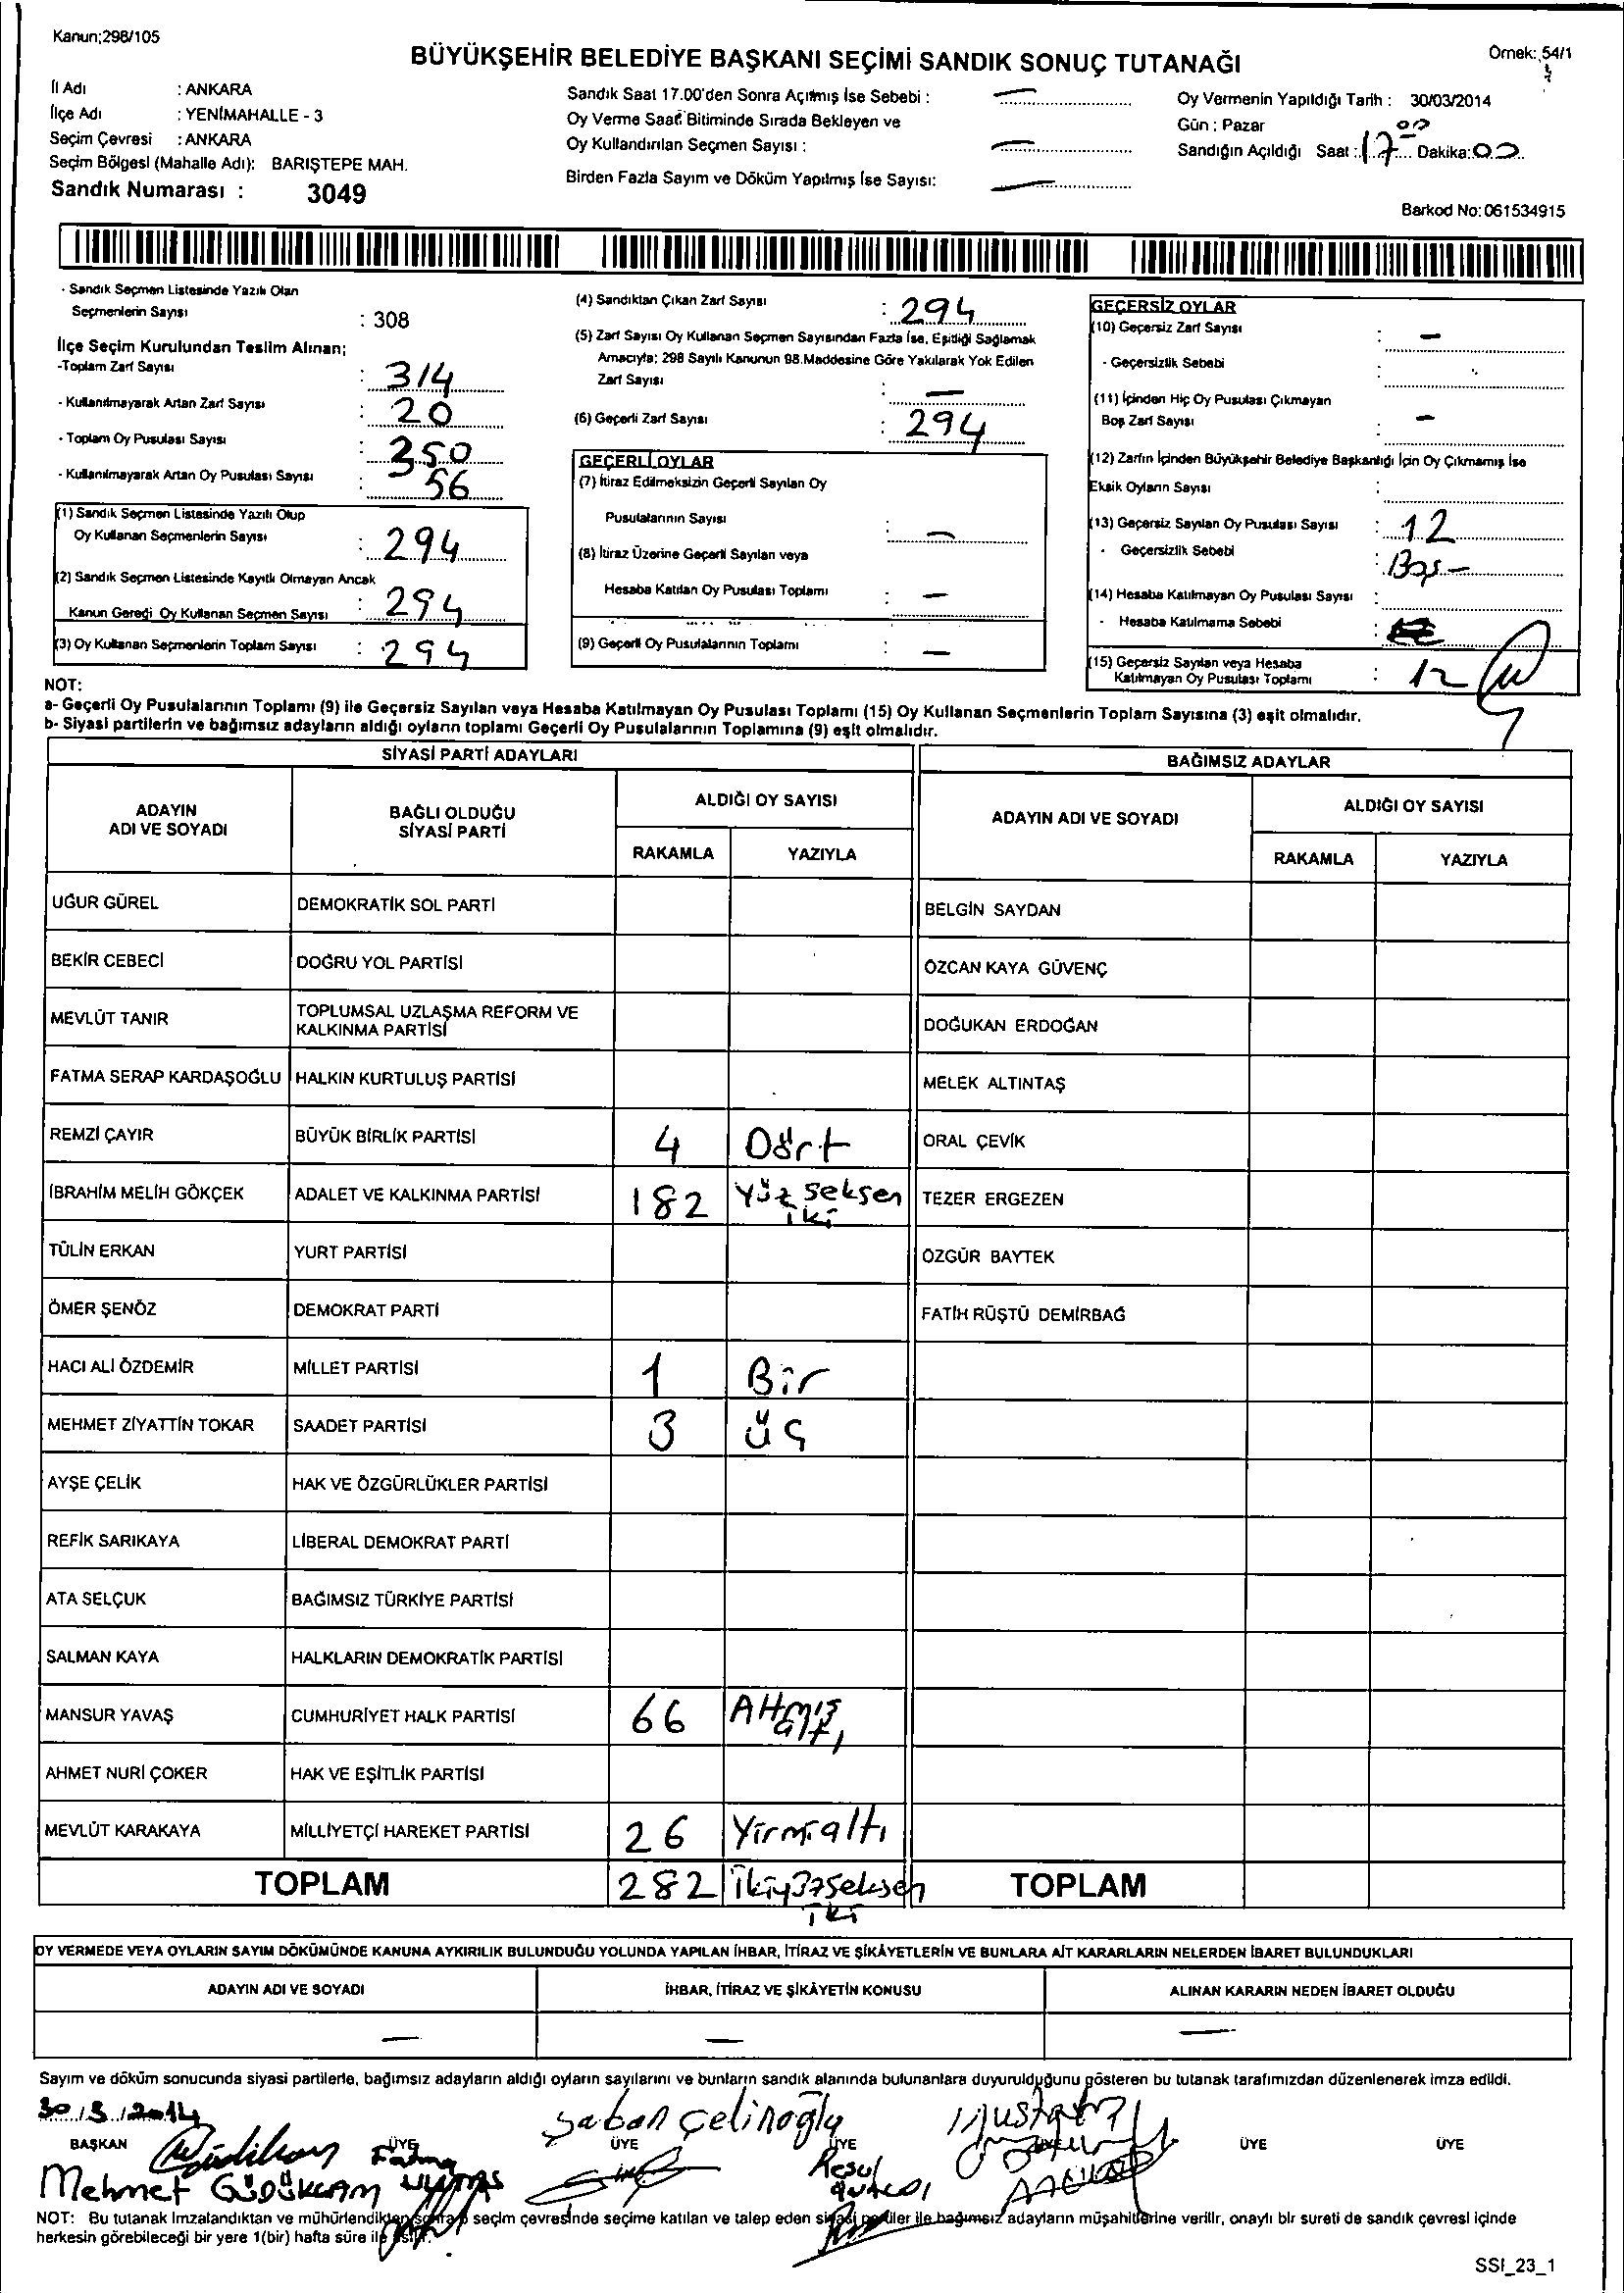 Kanun;298/105
BÜYÜKŞEHİR BELEDİYE BAŞKANI SEÇİMİ SANDIK SONUÇ TUTANAĞI
Örnek: 54/1
İl Adı : ANKARA
İlçe Adı : YENİMAHALLE - 3
Seçim Çevresi : ANKARA
Seçim Bölgesi (Mahalle Adı): BARIŞTEPE MAH.
Sandık Numarası : 3049
Sandık Saat 17.00'den Sonra Açılmış İse Sebebi : —
Oy Verme Saati Bitiminde Sırada Bekleyen ve
Oy Kullandırılan Seçmen Sayısı : —
Birden Fazla Sayım ve Döküm Yapılmış İse Sayısı: —
Oy Vermenin Yapıldığı Tarih : 30/03/2014
Gün : Pazar
Sandığın Açıldığı Saat : 17 00 Dakika: 00
Barkod No: 061534915
- Sandık Seçmen Listesinde Yazılı Olan
Seçmenlerin Sayısı : 308
İlçe Seçim Kurulundan Teslim Alınan;
-Toplam Zarf Sayısı : 314
- Kullanılmayarak Artan Zarf Sayısı : 20
- Toplam Oy Pusulası Sayısı : 350
- Kullanılmayarak Artan Oy Pusulası Sayısı : 56
(1) Sandık Seçmen Listesinde Yazılı Olup
Oy Kullanan Seçmenlerin Sayısı : 294
(2) Sandık Seçmen Listesinde Kayıtlı Olmayan Ancak
Kanun Gereği Oy Kullanan Seçmen Sayısı : 294
(3) Oy Kullanan Seçmenlerin Toplam Sayısı : 294
(4) Sandıktan Çıkan Zarf Sayısı : 294
(5) Zarf Sayısı Oy Kullanan Seçmen Sayısından Fazla İse, Eşitliği Sağlamak
Amacıyla; 298 Sayılı Kanunun 98.Maddesine Göre Yakılarak Yok Edilen
Zarf Sayısı : —
(6) Geçerli Zarf Sayısı : 294
GEÇERLİ OYLAR
(7) İtiraz Edilmeksizin Geçerli Sayılan Oy
Pusulalarının Sayısı : —
(8) İtiraz Üzerine Geçerli Sayılan veya
Hesaba Katılan Oy Pusulası Toplamı : —
(9) Geçerli Oy Pusulalarının Toplamı : —
GEÇERSİZ OYLAR
(10) Geçersiz Zarf Sayısı : —
- Geçersizlik Sebebi :
(11) İçinden Hiç Oy Pusulası Çıkmayan
Boş Zarf Sayısı : —
(12) Zarfın İçinden Büyükşehir Belediye Başkanlığı İçin Oy Çıkmamış İse
Eksik Oyların Sayısı :
(13) Geçersiz Sayılan Oy Pusulası Sayısı : 12
- Geçersizlik Sebebi : Boş -
(14) Hesaba Katılmayan Oy Pusulası Sayısı :
- Hesaba Katılmama Sebebi :
(15) Geçersiz Sayılan veya Hesaba
Katılmayan Oy Pusulası Toplamı : 12
NOT:
a- Geçerli Oy Pusulalarının Toplamı (9) ile Geçersiz Sayılan veya Hesaba Katılmayan Oy Pusulası Toplamı (15) Oy Kullanan Seçmenlerin Toplam Sayısına (3) eşit olmalıdır.
b- Siyasi partilerin ve bağımsız adayların aldığı oyların toplamı Geçerli Oy Pusulalarının Toplamına (9) eşit olmalıdır.
SİYASİ PARTİ ADAYLARI
BAĞIMSIZ ADAYLAR
ADAYIN ADI VE SOYADI
BAĞLI OLDUĞU SİYASİ PARTİ
ALDIĞI OY SAYISI
RAKAMLA YAZIYLA
ADAYIN ADI VE SOYADI
ALDIĞI OY SAYISI
RAKAMLA YAZIYLA
UĞUR GÜREL DEMOKRATİK SOL PARTİ BELGİN SAYDAN
BEKİR CEBECİ DOĞRU YOL PARTİSİ ÖZCAN KAYA GÜVENÇ
MEVLÜT TANIR TOPLUMSAL UZLAŞMA REFORM VE KALKINMA PARTİSİ DOĞUKAN ERDOĞAN
FATMA SERAP KARDAŞOĞLU HALKIN KURTULUŞ PARTİSİ MELEK ALTINTAŞ
REMZİ ÇAYIR BÜYÜK BİRLİK PARTİSİ 4 Dört ORAL ÇEVİK
İBRAHİM MELİH GÖKÇEK ADALET VE KALKINMA PARTİSİ 182 Yüz seksen iki TEZER ERGEZEN
TÜLİN ERKAN YURT PARTİSİ ÖZGÜR BAYTEK
ÖMER ŞENÖZ DEMOKRAT PARTİ FATİH RÜŞTÜ DEMİRBAĞ
HACI ALİ ÖZDEMİR MİLLET PARTİSİ 1 Bir
MEHMET ZİYATTİN TOKAR SAADET PARTİSİ 3 üç
AYŞE ÇELİK HAK VE ÖZGÜRLÜKLER PARTİSİ
REFİK SARIKAYA LİBERAL DEMOKRAT PARTİ
ATA SELÇUK BAĞIMSIZ TÜRKİYE PARTİSİ
SALMAN KAYA HALKLARIN DEMOKRATİK PARTİSİ
MANSUR YAVAŞ CUMHURİYET HALK PARTİSİ 66 Altmış altı
AHMET NURİ ÇOKER HAK VE EŞİTLİK PARTİSİ
MEVLÜT KARAKAYA MİLLİYETÇİ HAREKET PARTİSİ 26 Yirmialtı
TOPLAM 282 İkiyüzseksen iki TOPLAM
OY VERMEDE VEYA OYLARIN SAYIM DÖKÜMÜNDE KANUNA AYKIRILIK BULUNDUĞU YOLUNDA YAPILAN İHBAR, İTİRAZ VE ŞİKÂYETLERİN VE BUNLARA AİT KARARLARIN NELERDEN İBARET BULUNDUKLARI
ADAYIN ADI VE SOYADI İHBAR, İTİRAZ VE ŞİKÂYETİN KONUSU ALINAN KARARIN NEDEN İBARET OLDUĞU
— — —
Sayım ve döküm sonucunda siyasi partilerle, bağımsız adayların aldığı oyların sayılarını ve bunların sandık alanında bulunanlara duyurulduğunu gösteren bu tutanak tarafımızdan düzenlenerek imza edildi.
30/3/2014
Şaban Çelinoğlu Mustafa
BAŞKAN ÜYE ÜYE ÜYE ÜYE ÜYE
Fatma Resul
Mehmet
NOT: Bu tutanak İmzalandıktan ve mühürlendikten sonra seçim çevresinde seçime katılan ve talep eden siyasi partiler ile bağımsız adayların müşahitlerine verilir, onaylı bir sureti de sandık çevresi içinde
herkesin görebileceği bir yere 1(bir) hafta süre ile asılır.
SSI_23_1